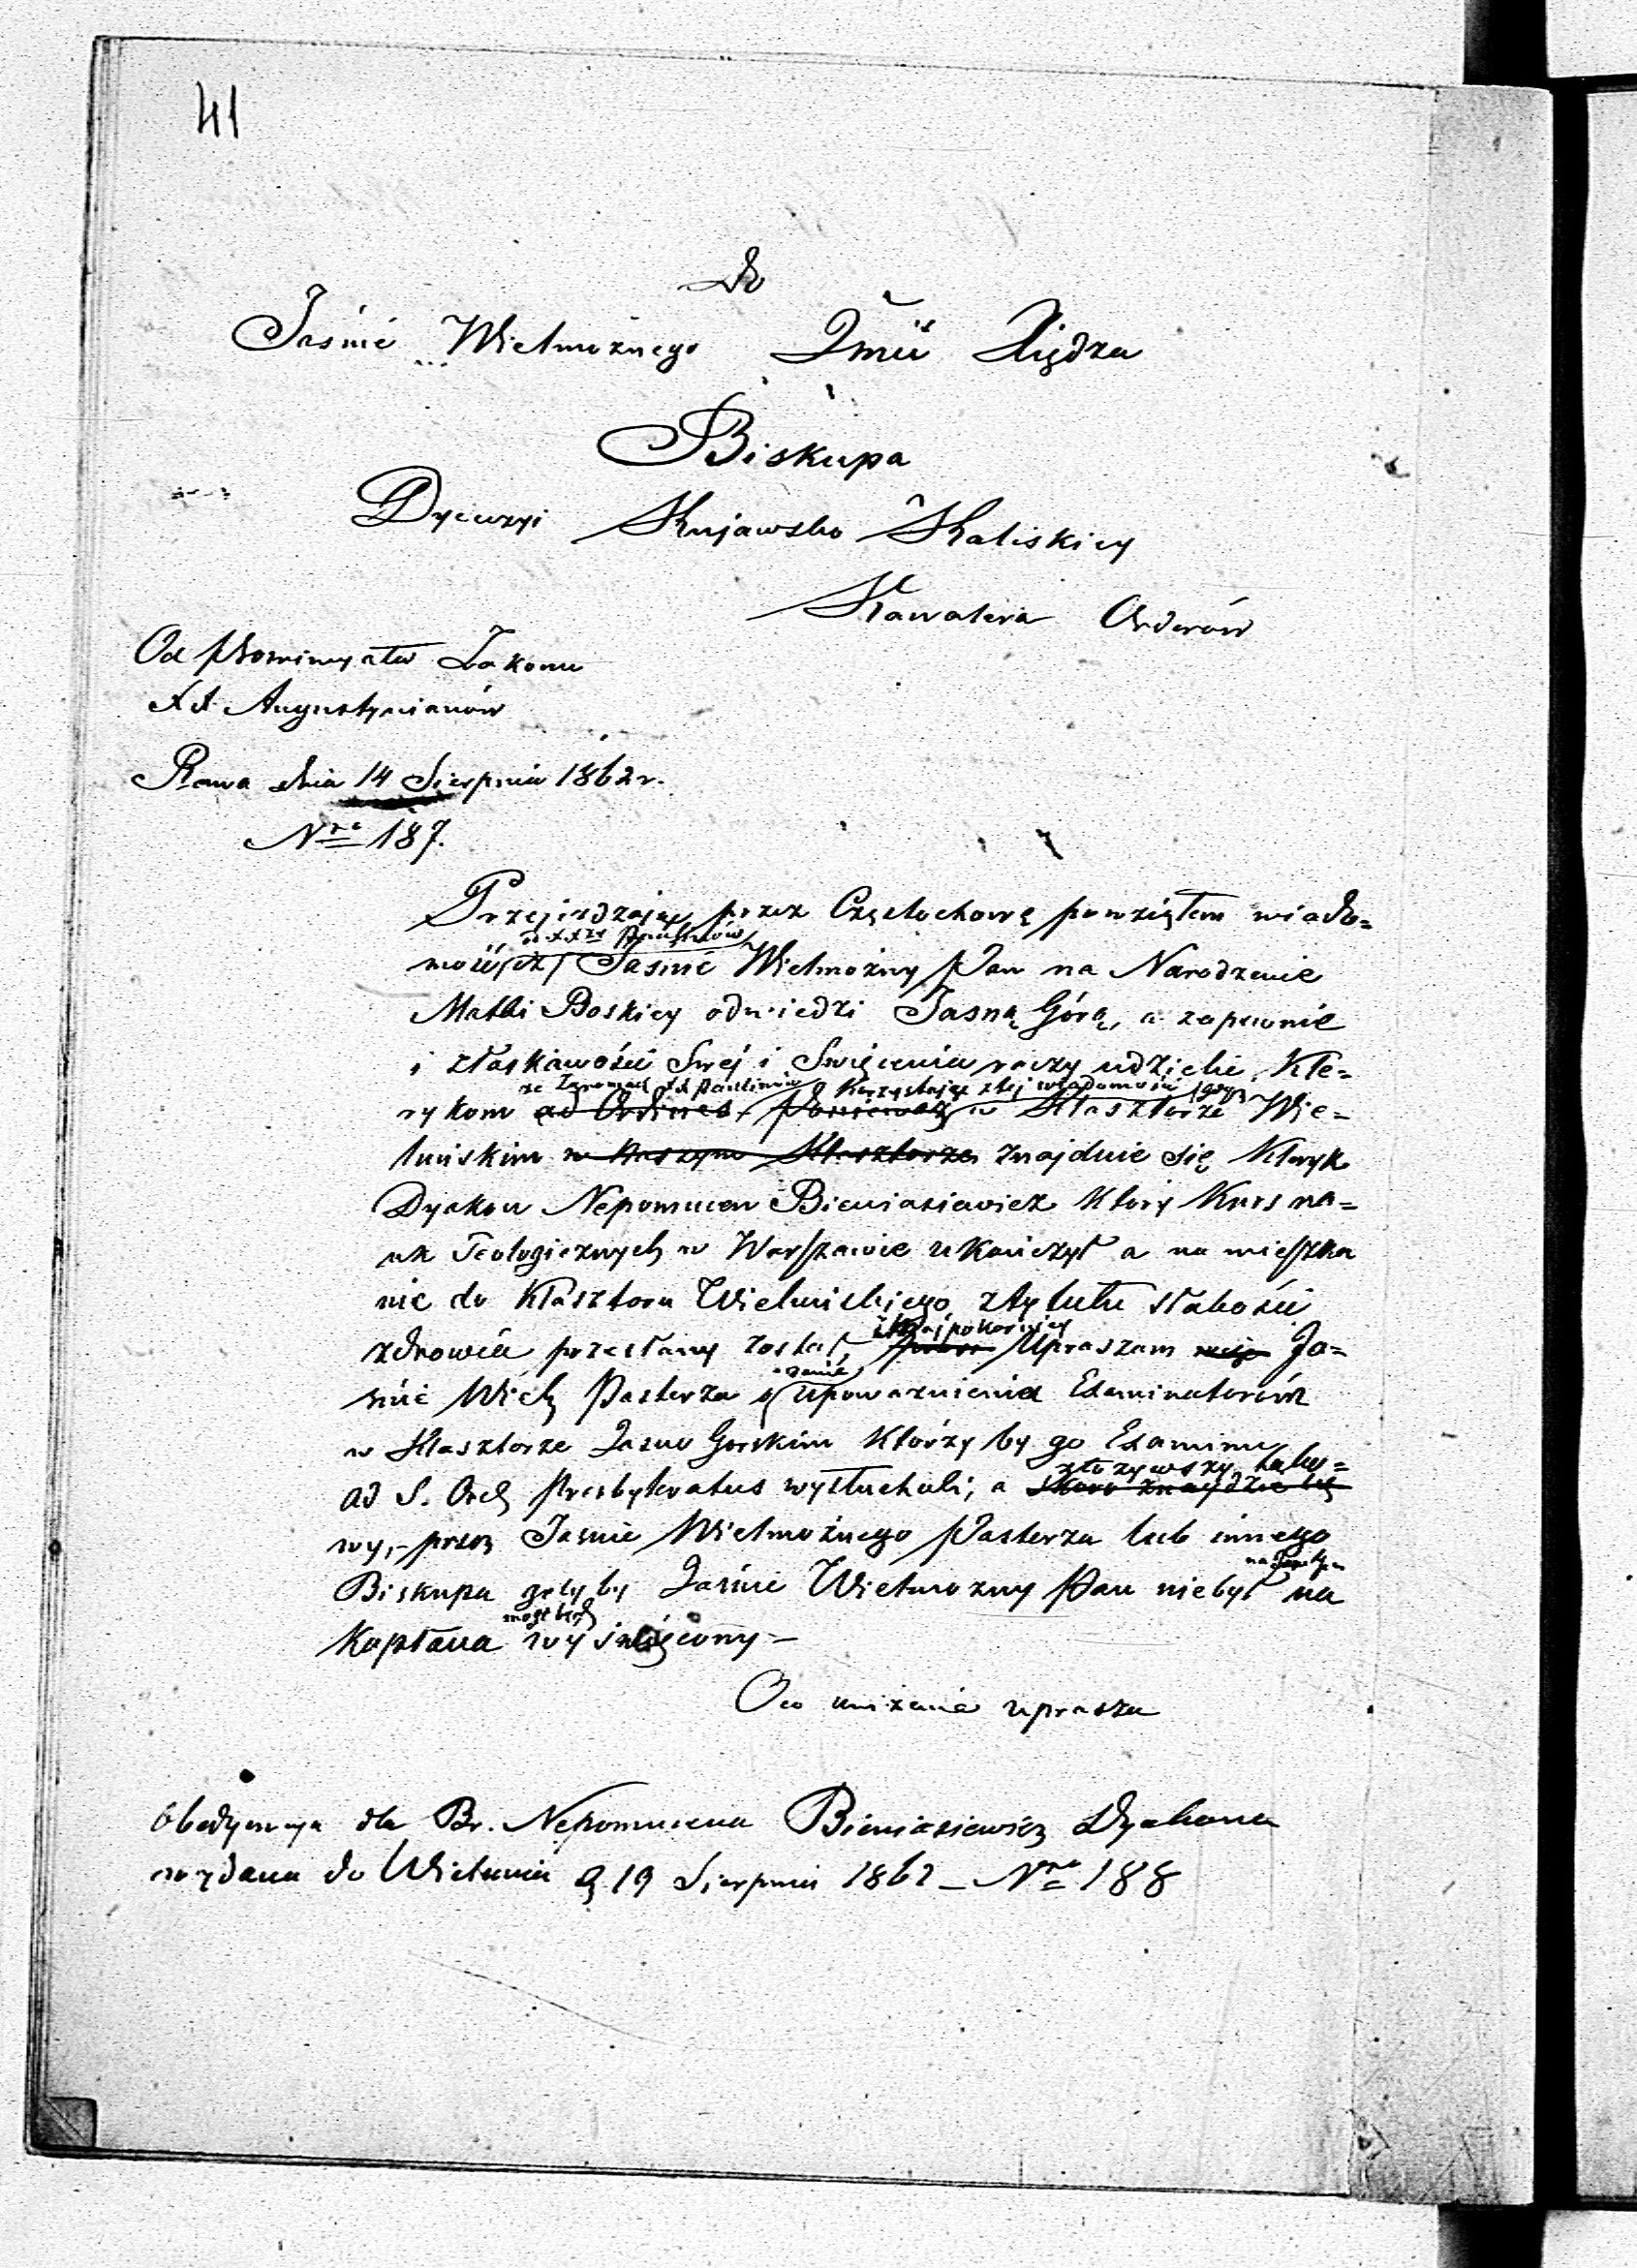 41
Do
Jaśnie Wielmożnego Jmći Xiędza
Biskupa
Dyecezyi Kujawsko Kaliskiey
Kawalera Orderów
Od Prowincyała Zakonu
XX Augustyianów
Rawa dnia 14 Sierpnia 1862 r.
Nro 187.
Przejeżdzając przez Częstochowę powziąłem wiado=
od XXzy Paulinów
mość, iż Jaśnie Wielmożny Pan na Narodzenie
Matki Boskiey odwiedzi Jasną Górę, a zapewnie
i złaskawości Swej i Święcenia raczy udzielić Kle=
ze Zgromadz XX Paulinów Korzystając ztej wiadomości gdy
rykom ad Ordines. Ponieważ w Klasztorze Wie=
luńskim w Naszym Klasztorze znajduie się Kleryk
Dyakon Nepomucen Bieniasiewicz który Kurs na=
uk Teologicznych w Warszawie ukończył a na mieszka
nie do Klasztoru Wieluńskiego ztytułu słabości
zdrowia przesłany został, Upraszam Ja=
Najpokorniey
śnie Wiel Pasterza o upoważnienia Examinatorów
w Klasztorze Jasno Gorskim którzy by go Examinu
ad S. Ord Presbyteratus wysłuchali; a skoro znaydzie się
złożywszy tako=
wy,- przez Jaśnie Wielmożnego Pasterza lub innego
Biskupa gdyby Jaśnie Wielmożny Pan niebył na
mógł być
Kapłana wyświęcony –
Oco uniżenie uprasza
Obedyencya dla Br. Nepomucena Bieniasiewicz Dyakona
wydana do Wielunia d 19 Sierpnia 1862 – Nro 188